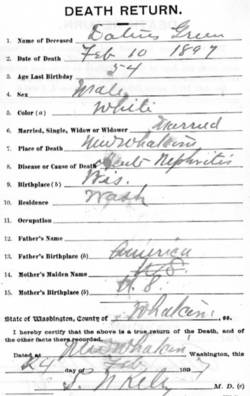 DEATH RETURN.
1. Name of Deceased Datius Green
2. Date of Death Feb 10 1897
3. Age Last Birthday 54
4. Sex Male
5. Color (a) White
6. Married, Single, Widow or Widower Married
7. Place of Death New Whatcom
8. Disease or Cause of Death Nephritis
9. Birthplace (b) Wis.
10. Residence Wash
11. Occupation
12. Father's Name
13. Father's Birthplace (b) America
14. Mother's Maiden Name
15. Mother's Birthplace (b) U.S.
State of Washington, County of Whatcom
I hereby certify that the above is a true return of the Death, and of
the other facts there recorded.
Dated at New Whatcom Washington, this
24 day of Feb 1897
M. D. (c)